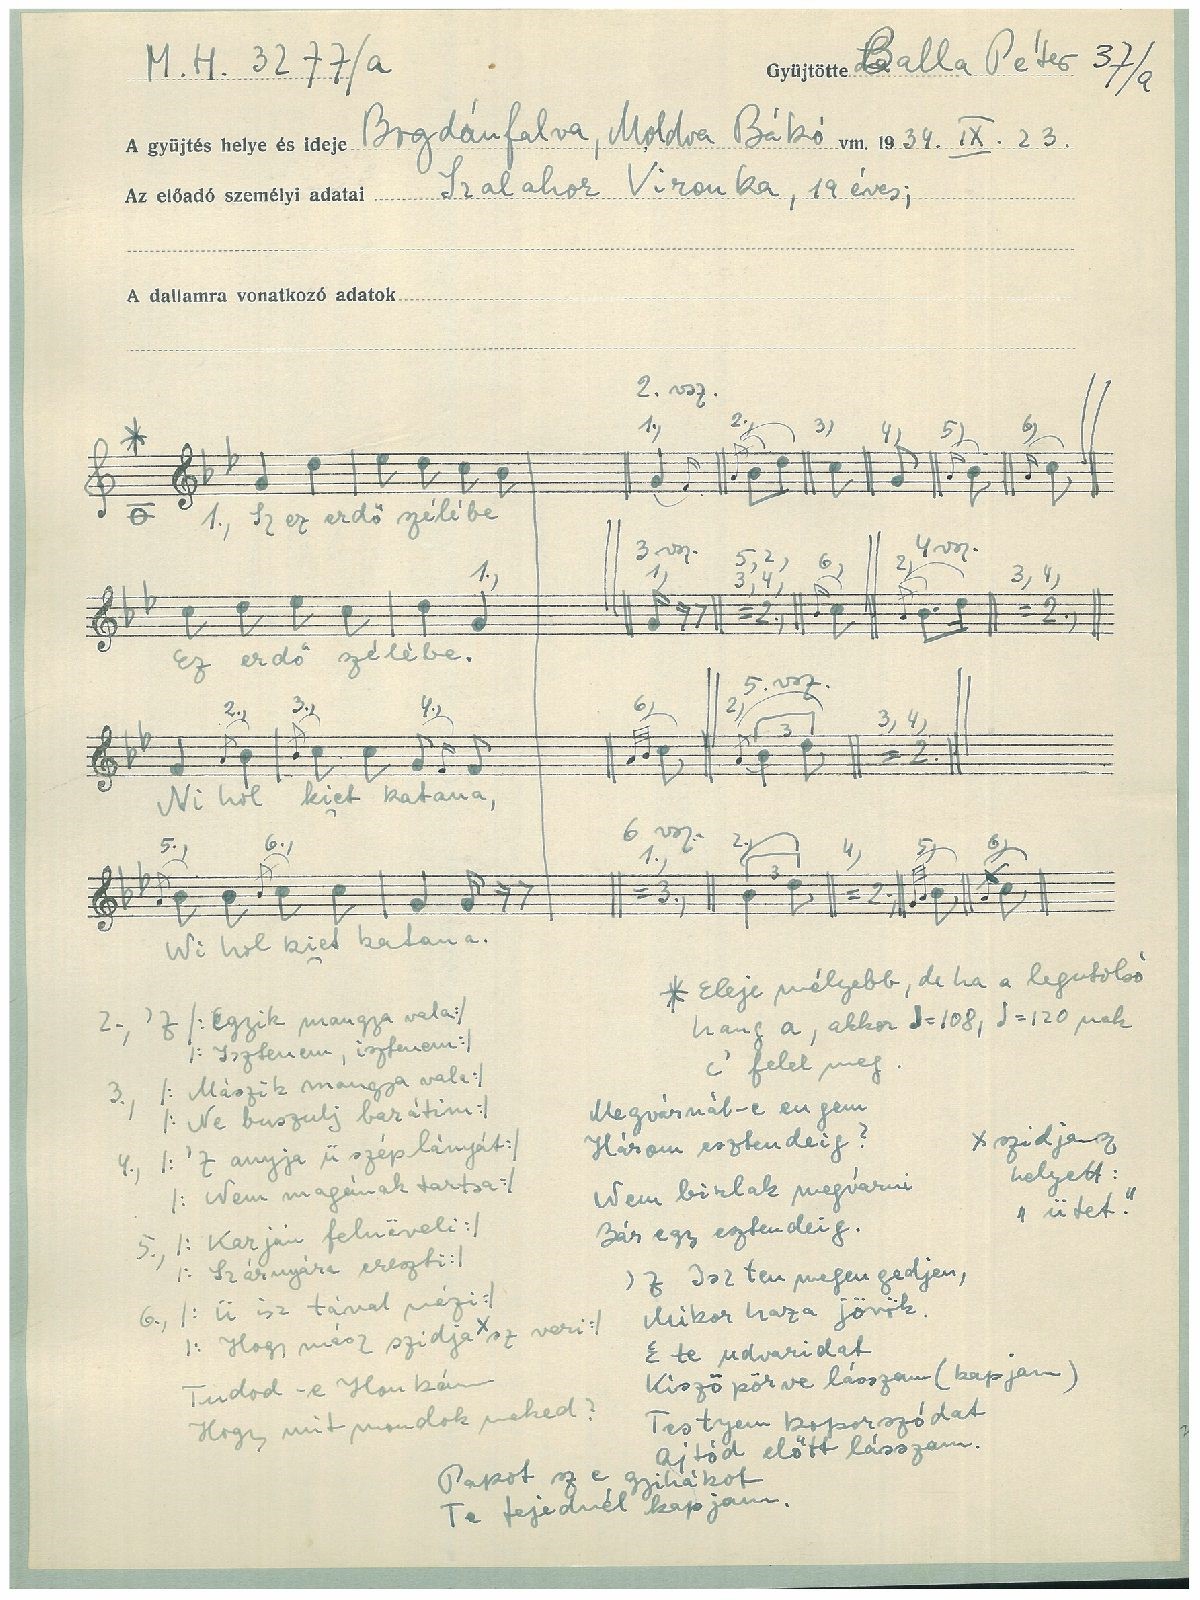 M.H. 3277/a
Gyüjtötte Balla Péter 37/a
A gyüjtés helye és ideje Bogdánfalva, Moldva Bákó vm. 1934. IX. 23.
Az előadó személyi adatai Szalahor Vironka, 19 éves;
A dallamra vonatkozó adatok
2. vsz.
1., 2., 3, 4, 5, 6,
1., Sz ez erdő szélébe
1.,
3 vsz. 4 vsz.
1, 5, 2, 3, 4, 6, 2, 3, 4,
= 2., = 2.,
Ez erdő szélébe.
2., 3., 4.,
6, 5. vsz. 2, 3 3, 4, = 2.
Ni hol kiet katana,
5., 6.,
6 vsz.
1., = 3., 2., 3 4, = 2., 5, 6,
Ni hol kiet katana.
* Eleje mélyebb, de ha a legutolsó
hang a, akkor ♩=108, ♩=120 nak
c' felel meg.
2., 'Z /: Egzik mangza vala:/
/: Isztenem, isztenem:/
3., /: Mászik mangza vala:/
/: Ne buszulj barátim:/
4., /: 'Z anyja ü szép lányát:/
/: Nem magának tartsa:/
5., /: Karján felnüveli:/
/: Szárnyára ereszti:/
6., /: Ü isz távul nézi:/
/: Hogy mász szidja x sz veri:/
Tudod-e Ilonkám
Hogy mit mondok neked?
Megvárnál-e engem
Három esztendeig?
Nem birlak megvárni
Bár egy eztendeig.
x szidja sz
helyett:
„ütet."
'Z Iszten megengedjen,
Mikor haza jövök.
E te udvaridat
Kiszöpörve lásszam (kapjam)
Testyem koporszódat
Ajtód előtt lásszam.
Papot sz e gyihákot
Te fejednél kapjam.